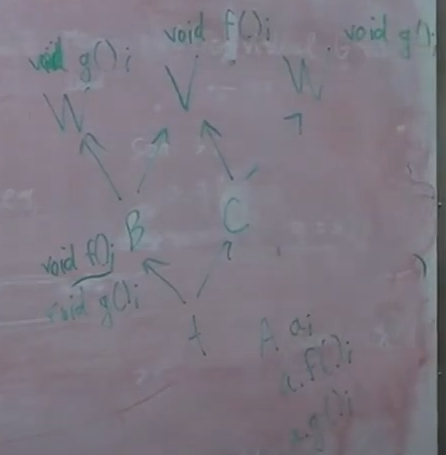 void g();
void f();
void g();
W
V
W
B
C
void f();
void g();
A
A a;
a.f();
a.g();